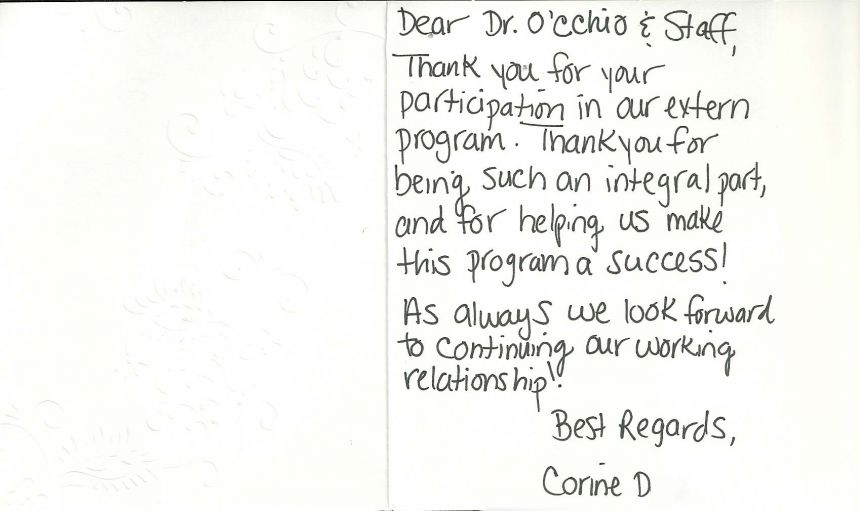 Dear Dr. O'cchio & Staff,
Thank you for your
participation in our extern
program. Thank you for
being such an integral part,
and for helping us make
this program a success!
As always we look forward
to continuing our working
relationship!!
Best Regards,
Corine D